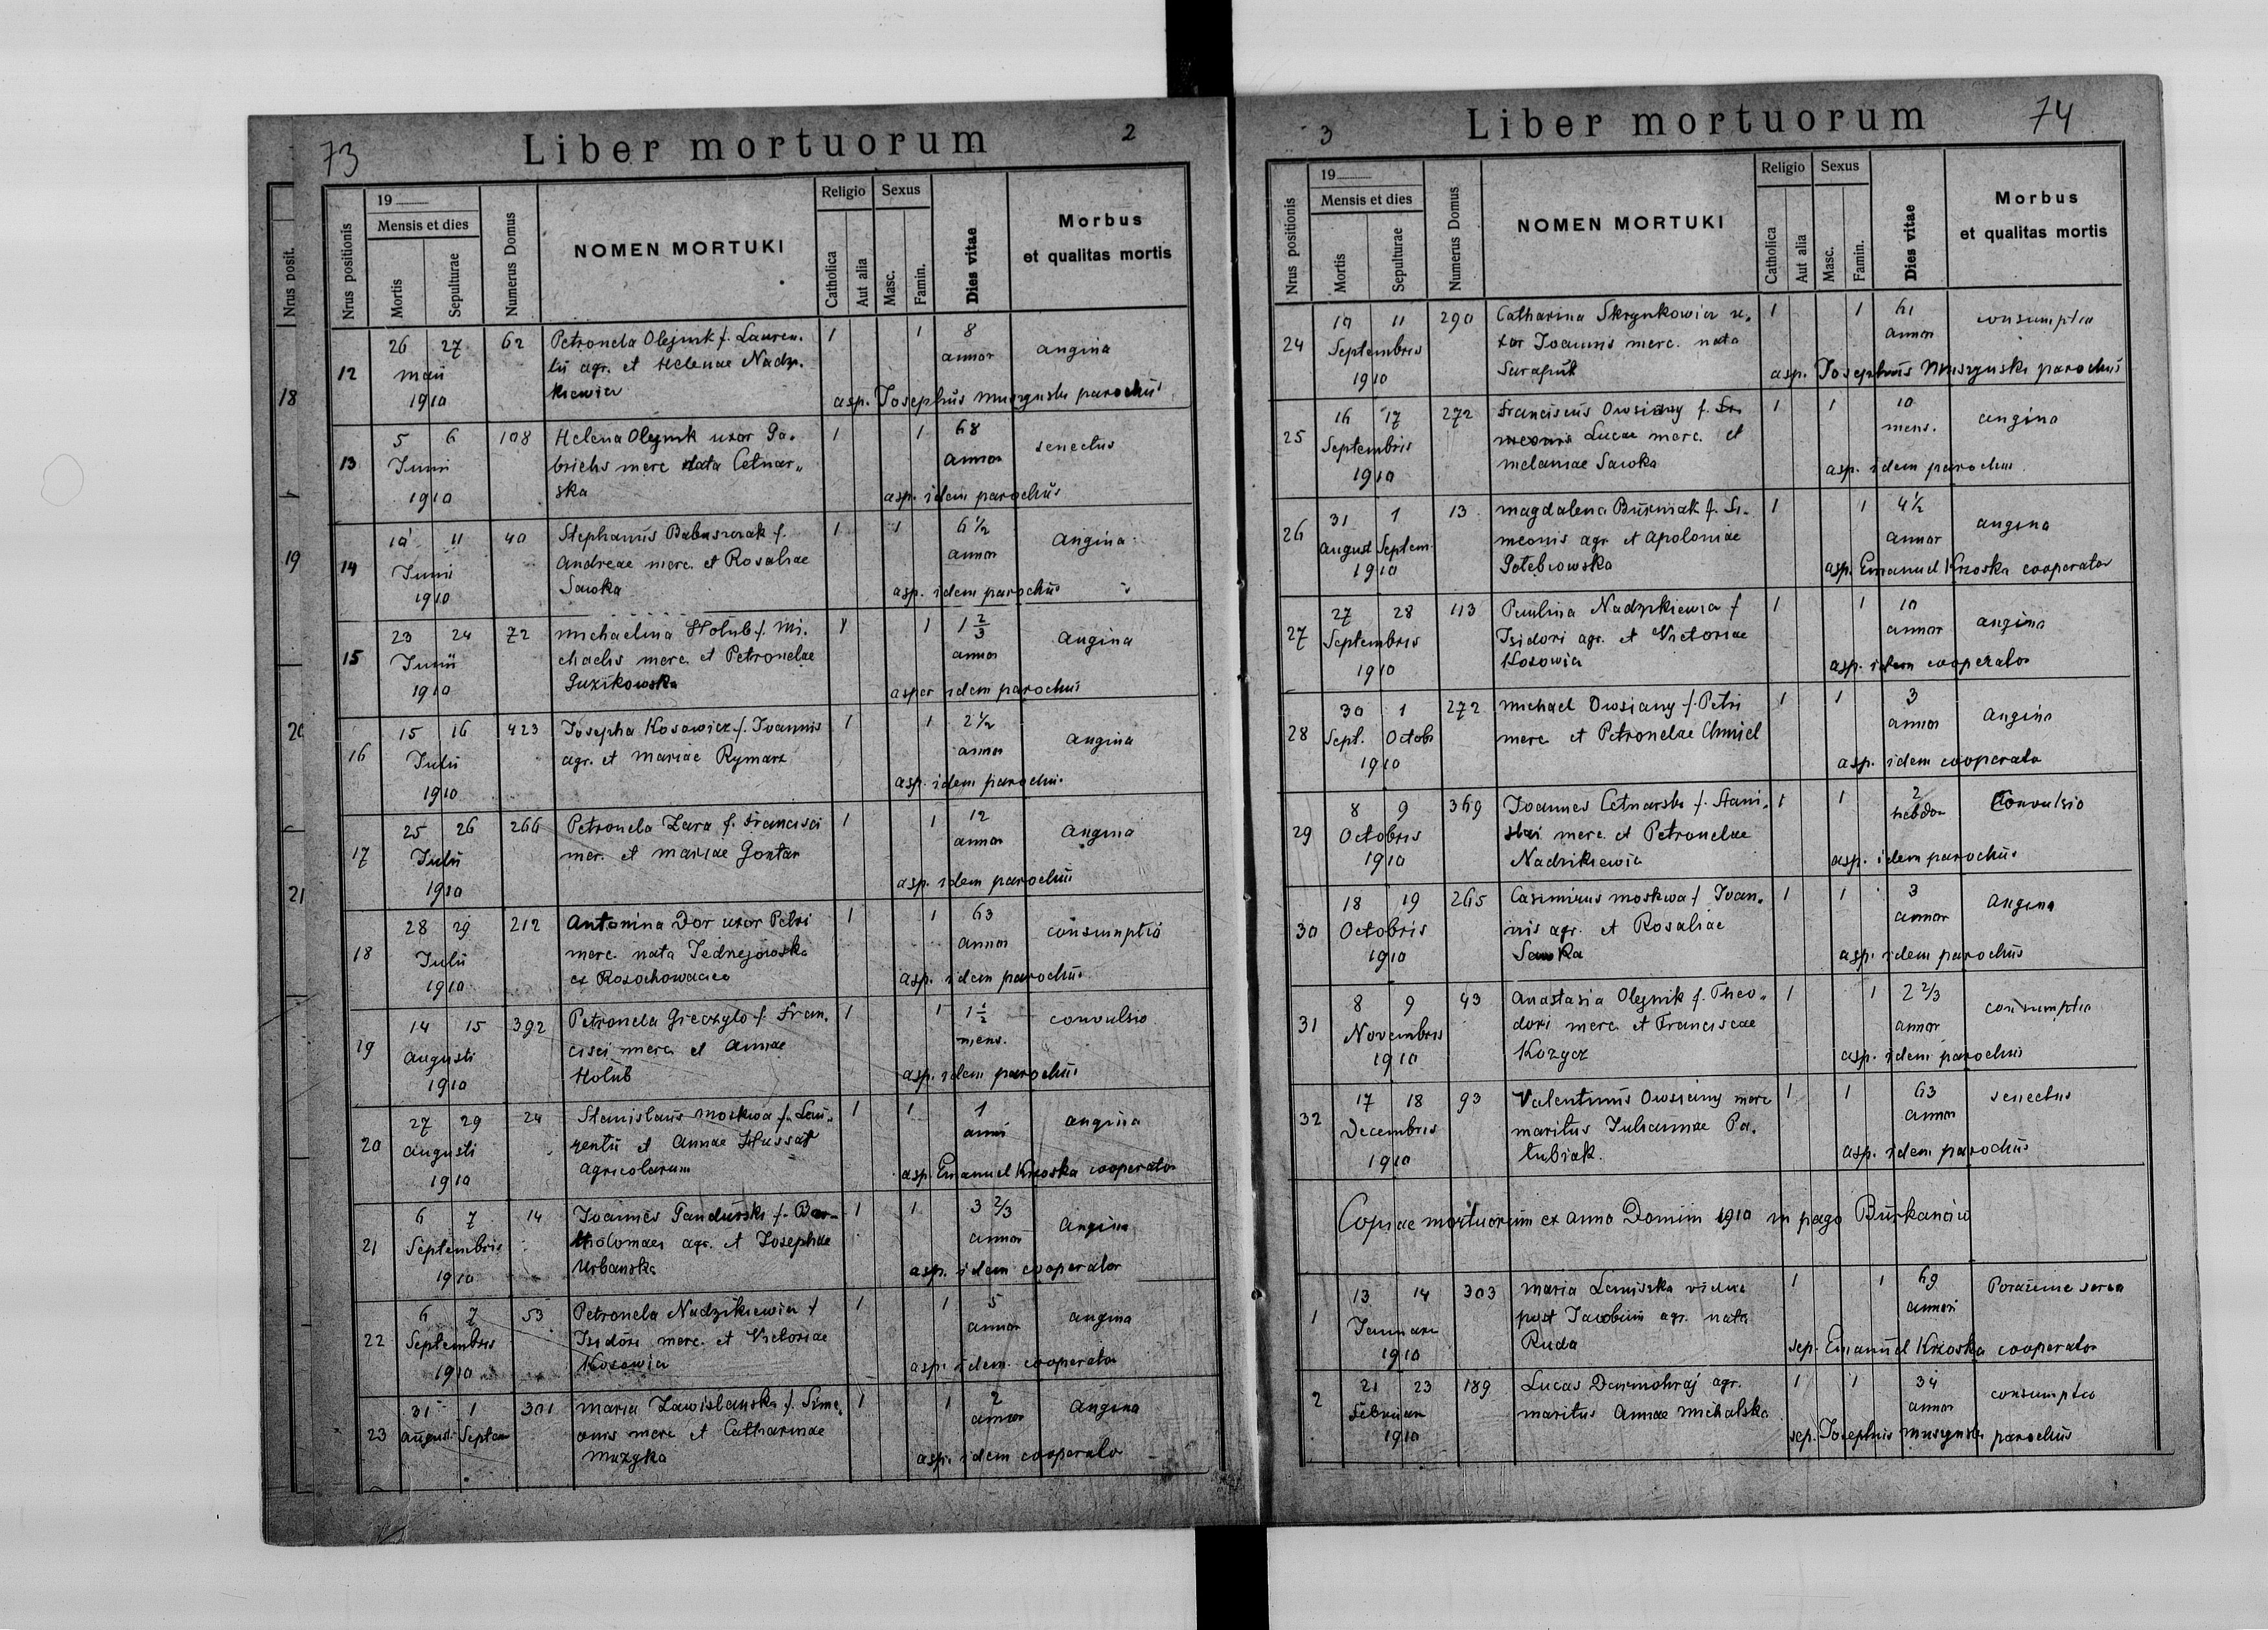 73
Liber mortuorum
2
Nrus posit.
18
19
20
21
Nrus positionis
19
Mensis et dies
Mortis
Sepulturae
Numerus Domus
NOMEN MORTUKI
Religio
Catholica
Aut alia
Sexus
Masc.
Famin.
Dies vitae
Morbus
et qualitas mortis
26 27 62 Petronela Olejnik f. Lauren- 1 1 8
12 maii tii agr. et Helenae Nadzi- annor angina
1910 kiewicz asp. Josephus Muszyński parochus
5 6 108 Helena Olejnik uxor Ga- 1 1 68 senectus
13 Junii brielis merc nata Cetnar- annor
1910 ska asp. idem parochus
10 11 40 Stephanus Babuszczak f. 1 1 6 1/2 Angina
14 Junii Andreae merc. et Rosaliae annor
1910 Sawka asp. idem parochus
23 24 72 Michaelina Hołub f. Mi- 1 1 1 2/3 Angina
15 Junii chaelis merc. et Petronelae annor
1910 Guzikowska asper idem parochus
15 16 423 Josepha Kosowicz f. Joannis 1 1 2 1/2 Angina
16 Julii agr. et Mariae Rymarz annor
1910 asp. idem parochus
25 26 266 Petronela Zara f. Francisci 1 1 12 Angina
17 Julii mer. et Mariae Gontar annor
1910 asp. idem parochus
28 29 212 Antonina Dor uxor Petri 1 1 63 consumptio
18 Julii merc. nata Jednejowska annor
1910 ex Rosochowaciec asp. idem parochus
14 15 392 Petronela Greczyło f. Fran- 1 1 1 1/2 convulsio
19 Augusti cisci merc. et Annae mens.
1910 Hołub asp. idem parochus
27 29 24 Stanislaus Moskwa f. Lau- 1 1 1 angina
20 Augusti rentii et Annae Hussar anni
1910 agricolarum asp. Emanuel Krzoska cooperator
6 7 14 Joannes Pandurski f. Bar- 1 1 3 2/3 Angina
21 Septembris tholomaei agr. et Josephae annor
1910 Urbanska asp. idem cooperator
6 7 53 Petronela Nadzikiewicz f 1 1 5 angina
22 Septembris Isidori merc. et Victoriae annor
1910 Kosowicz asp. idem cooperator
31 1 301 Maria Zawislanska f. Sime- 1 1 2 Angina
23 August Septem onis merc et Catharinae annor
Muzyka asp. idem cooperato
3
Liber mortuorum
74
Nrus positionis
19
Mensis et dies
Mortis
Sepulturae
Numerus Domus
NOMEN MORTUKI
Religio
Catholica
Aut alia
Sexus
Masc.
Famin.
Dies vitae
Morbus
et qualitas mortis
10 11 290 Catharina Skrzynkowicz u- 1 1 61 consumptio
24 Septembris xor Joannis merc. nata annor
1910 Sarafin asp. Josephus Muszyński parochus
16 17 272 Franciscus Owsiany f. Si- 1 1 10 angina
25 Septembris meonis Lucae merc. et mens.
1910 Melaniae Sawka asp. idem parochus
31 1 13 Magdalena Burniak f. Si- 1 1 4 1/2 angina
26 August Septem meonis agr et Apoloniae annor
1910 Gołębiowska asp. Emanuel Krzoska cooperator
27 28 113 Paulina Nadzikiewicz f 1 1 10 angina
27 Septembris Isidori agr. et Victoriae annor
1910 Kosowicz asp. idem cooperator
30 1 272 Michael Owsiany f. Petri 1 1 3 Angina
28 Sept. Octobr merc et Petronelae Chmiel annor
1910 asp. idem cooperato
8 9 369 Joannes Cetnarski f. Stani- 1 1 2 Convulsio
29 Octobris slai merc. et Petronelae hebdom
1910 Nadzikiewicz asp. idem parochus
18 19 265 Casimirus Moskwa f Joan- 1 1 3 Angina
30 Octobris nis agr. et Rosaliae annor
1910 Sawka asp. idem parochus
8 9 43 Anastasia Olejnik f. Theo- 1 1 2 2/3 consumptio
31 Novembris dori merc. et Franciscae annor
1910 Kozycz asp. idem parochus
17 18 93 Valentinus Owsiany merc 1 1 63 senectus
32 Decembris maritus Juliannae Pa- annor
1910 łubiak. asp. idem parochus
Copiae mortuorum ex anno Domini 1910 in pago Burkanów
13 14 303 Maria Lemiszka vidua 1 1 69 Porażenie serca
1 Januari post Jacobum agr. nata annor
1910 Ruda sep. Emanuel Krzoska cooperator
21 23 189 Lucas Darmohraj agr. 1 1 34 consumptio
2 Februar maritus Annae Michalska annor
1910 sep. Josephus Muszyński parochus